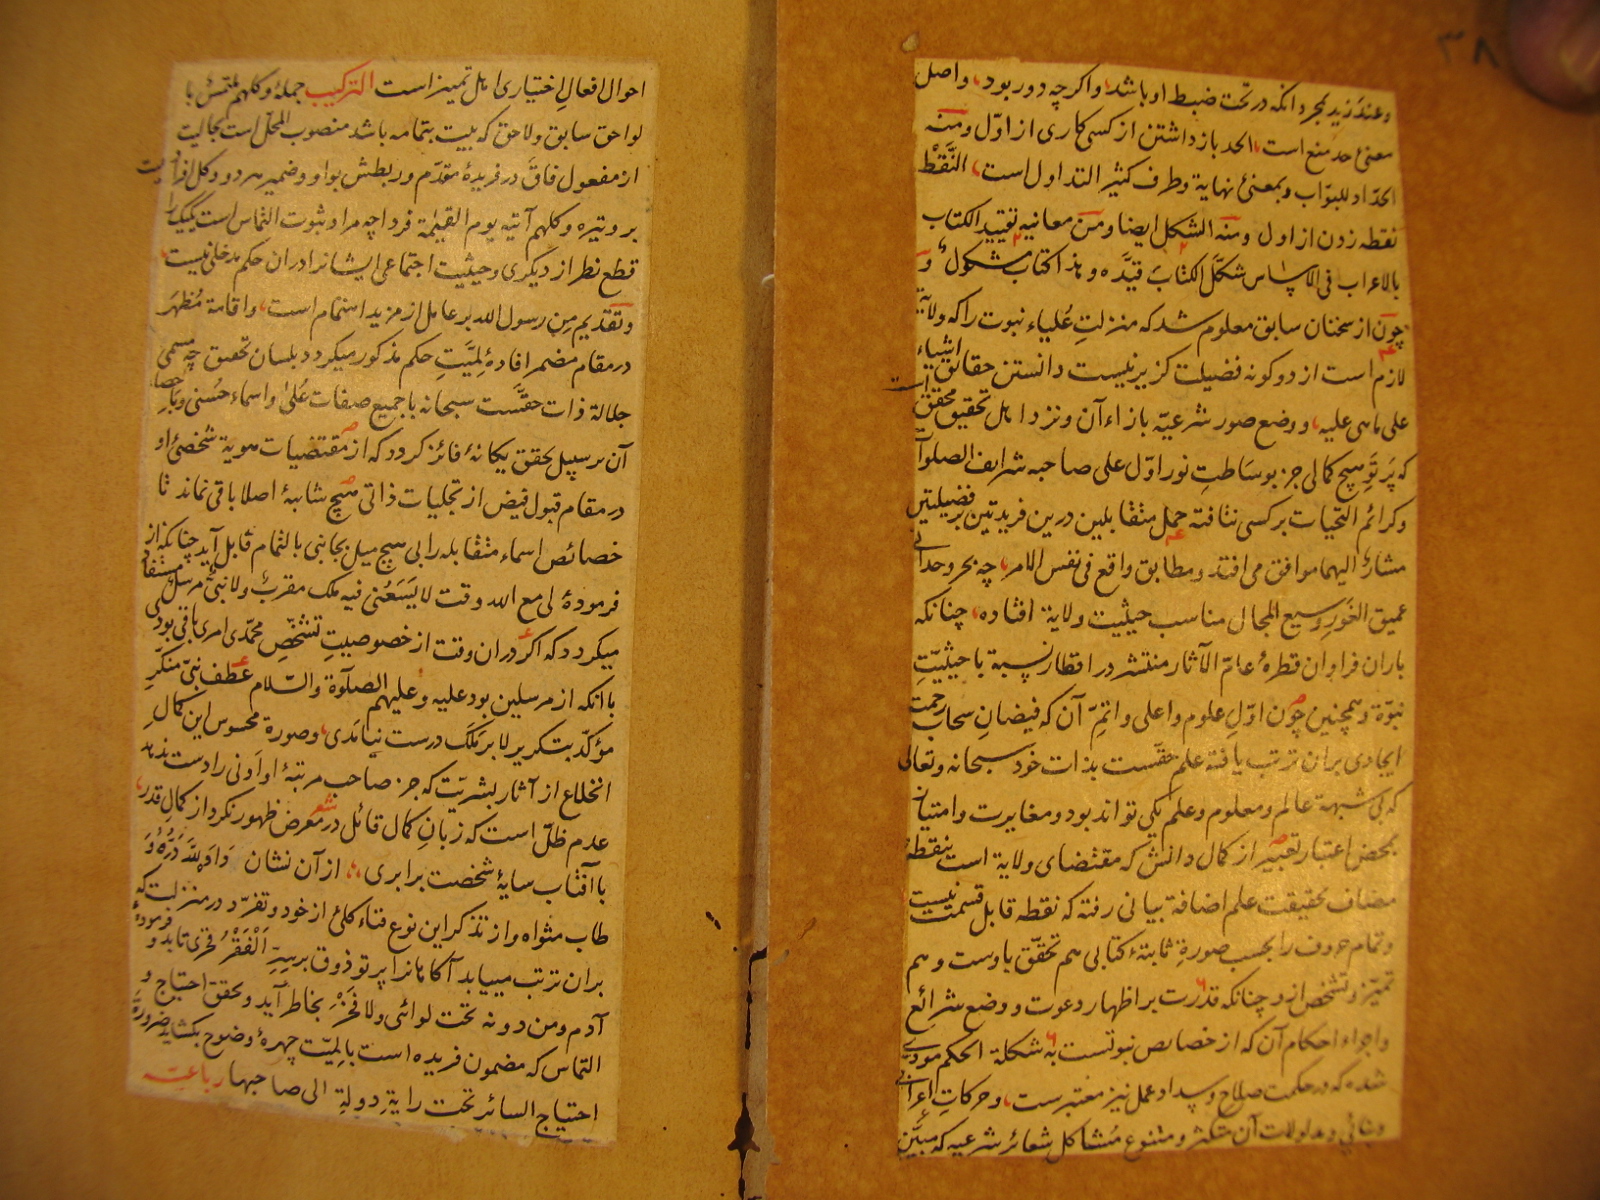 ۳۸
وعند زید بمجرد آنکه در تحت ضبط او باشد واکرچه دور بود واصل
معنیٔ حد منع است الحد باز داشتن از کسی کاری از اوّل ومنه
الحدّاد للبوّاب وبمعنیٔ نهایة وطرف کثیر التداول است النَّقْط
نقطه زدن از اول ومنه الشکل ایضا ومن معانیه تقیید الکتاب
بالاعراب فی الاساس شکَّل الکتابَ قیَّده وهذا کتاب مشکول و
چون از سخنان سابق معلوم شد که منزلتِ عُلیاء نبوت را که ولایة
لازم است از دو کونه فضیلت کزیر نیست دانستن حقائق اشیاء
علی ماهی علیه ووضع صور شرعیّه بازاء آن ونزد اهل تحقیق محقق است
که پَرتَوِ هیچ کمالی جز بوساطتِ نور اوّل علی صاحبه شرایف الصلوات
وکرائم التحیات بر کسی نتافته حمل متقابلین درین فریدتین بر فضیلتین
مشارٌ الیهما موافق می افتد ومطابق واقع فی نفس الامر چه بحر وحدانی
عمیق الغَورِ وسیع المجال مناسب حیثیت ولایة افتاده چنانکه
باران فراوان قطرهٔ عامّ الآثار منتشر در اقطار نسبة با حیثیّتِ
نبوّة وهمچنین چون اوّلِ علوم واعلی واتمِّ آن که فیضانِ سحاب رحمت
ایجادی بران ترتب یافته علم حقَّست بذات خود سبحانه وتعالی
که بی شبهة عالم ومعلوم وعلم یکی تواند بود ومغایرت وامتیاز
بمحض اعتبار تعبیر از کمال دانش که مقتضای ولایة است بنقطهٔ
مضاف بحقیقت علم اضافة بیانی رفته که نقطه قابل قسمت نیست
وتمام حروف را بحسب صورةِ ثابتهٔ کتابی هم تحقّق باوست وهم
تمیّز وتشخص ازو چنانکه قدرت بر اظهار دعوت ووضع شرائع
واجراء احکام آن که از خصائص نبوتست به شکلة الحکم مودّی
شده که در حکمت صلاح وسداد عمل نیز معتبرست وحرکاتِ اعرابی
وبنائی ومدلولات آن متکثر ومتنوع مُشاکل شعائر شرعیه که مبیّن
احوال افعالِ اختیاری اهل تمیز است الترکیب جملهٔ وکلهم ملتمسٌ با
لواحق سابق ولاحق که بیت بتمامه باشد منصوب المحلّ است بحالیت
از مفعول فاقَ در فریدهٔ مقدّم وربطش بواو وضمیر هر دو وکل افرادیست
بر وتیرهٔ وکلهم آتیه یوم القیمة فردا چه مراد ثبوت التماس است یکیک را
قطع نظر از دیکری وحیثیت اجتماعی ایشانرا دران حکم مدخلی نیست
وتقدیم مِن رسول الله بر عامل از مزید اهتمام است واقامة مُظهَر
در مقام مضمر افادهٔ لِمیَّتِ حکم مذکور میکردد بلسان تحقیق چه مسمی
جلالة ذات حقَّست سبحانه با جمیع صفات عُلیٰ واسماء حُسنی وباحصاءِ
آن بر سبیل تحقق یکانهٔ فائز کردد که از مقتضیات هویة شخصیٔ او
در مقام قبول فیض از تجلیات ذاتی هیچ شابهٔ اصلا باقی نماند تا
خصائص اسماء متقابله را بی هیچ میل بجانبی بالتمام قابل آید چنانکه از
فرمودهٔ لی مع الله وقت لا یَسَعُنی فیه ملک مقربٌ ولا نبیٌّ مرسلٌ مستفاد
میکردد که اکر دران وقت از خصوصیتِ تشخّصِ محمّدی امری باقی بودی
با آنکه از مرسلین بود علیه وعلیهم الصلوة والسّلام عطف نبیّ منکَّرِ
مؤکدّ بتکریر لا بر مَلَک درست نیامَدی وصورة محسوس این کمالِ
انخلاع از آثار بشریّت که جز صاحب مرتبهٔ او اَدنی را دست ندهد
عدم ظلّ است که زبانِ کمال قائل در معرض ظهور نکرد از کمالِ قدر
با آفتاب سایهٔ شخصت برابری از آن نشان داد لِلّهِ دَرُّهُ وَ
طاب مثواه واز تذکر این نوع فناء کلیٔ از خود وتفرّد در منزلت که
بران ترتب مییابد آکاهانرا پرتو ذوق بر سِرِّ اَلْفَقْرُ فخری تابد وفرمودهٔ
آدم ومن دونه تحت لوائی ولا فَخْر بخاطر آید وتحقق احتیاج و
التماس که مضمون فریده است با لِمیّت چهرهٔ وضوح بکشاید ضرورة
احتیاج السائر تحت رایةِ دولةِ الی صاحبها رباعیّه